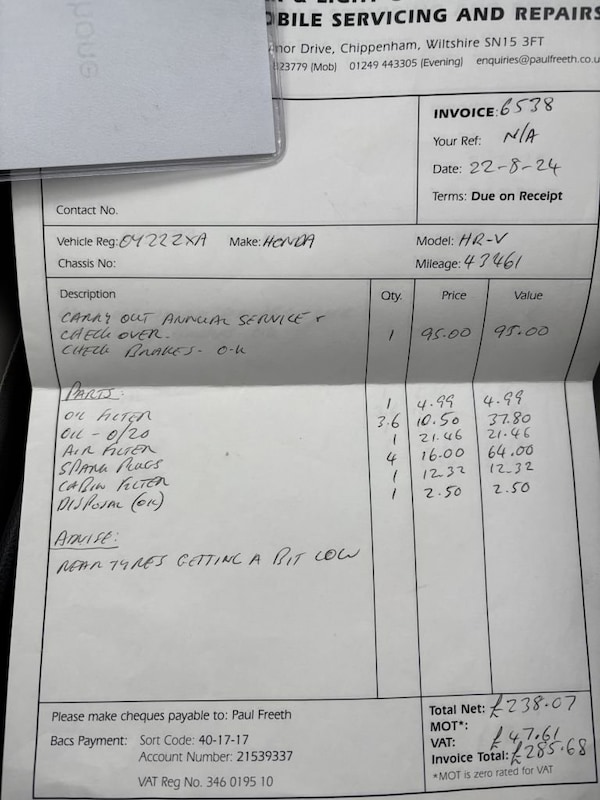 OBILE SERVICING AND REPAIRS
nor Drive, Chippenham, Wiltshire SN15 3FT
23779 (Mob) 01249 443305 (Evening) enquiries@paulfreeth.co.u
INVOICE: 6538
Your Ref: N/A
Date: 22-8-24
Terms: Due on Receipt
Contact No.
Vehicle Reg: OY22ZXA Make: HONDA Model: HR-V
Chassis No: Mileage: 43461
Description Qty. Price Value
CARRY OUT ANNUAL SERVICE +
CHECK OVER. 1 95.00 95.00
CHECK BRAKES - O.K
PARTS:
OIL FILTER 1 4.99 4.99
OIL - 0/20 3.6 10.50 37.80
AIR FILTER 1 21.46 21.46
SPARK PLUGS 4 16.00 64.00
CABIN FILTER 1 12.32 12.32
DISPOSAL (OIL) 1 2.50 2.50
ADVISE:
REAR TYRES GETTING A BIT LOW
Please make cheques payable to: Paul Freeth
Bacs Payment: Sort Code: 40-17-17
Account Number: 21539337
VAT Reg No. 346 0195 10
Total Net: £238.07
MOT*:
VAT: £47.61
Invoice Total: £285.68
*MOT is zero rated for VAT